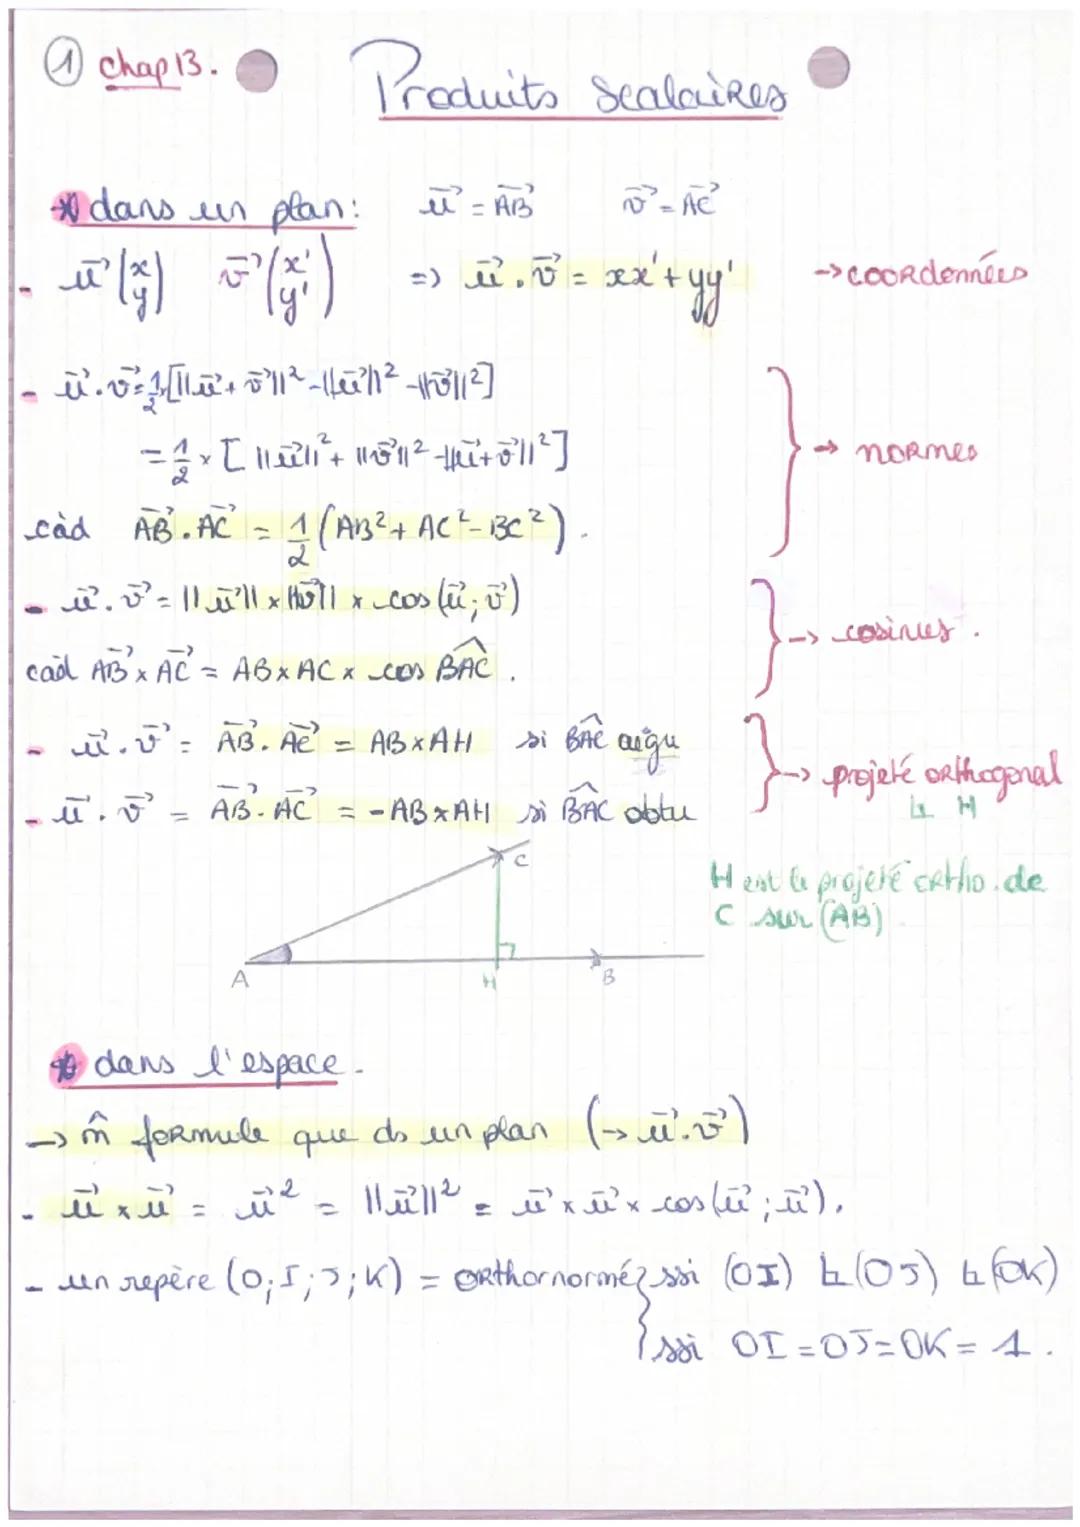 ① chap 13.
Produits scalaires
* dans un plan: $\vec{u} = \vec{AB}$ $\vec{v} = \vec{AC}$
- $\vec{u}\binom{x}{y}$ $\vec{v}\binom{x'}{y'}$ => $\vec{u}.\vec{v} = xx' + yy'$ → cooRdennées
- $\vec{u}.\vec{v} = \frac{1}{2}[||\vec{u}+\vec{v}||^2 - ||\vec{u}||^2 - ||\vec{v}||^2]$
$= \frac{1}{2} \times [||\vec{u}||^2 + ||\vec{v}||^2 - ||\vec{u}+\vec{v}||^2]$ → noRmes
càd $\vec{AB}.\vec{AC} = \frac{1}{2}(AB^2 + AC^2 - BC^2)$.
- $\vec{u}.\vec{v} = ||\vec{u}|| \times ||\vec{v}|| \times cos(\vec{u};\vec{v})$ → cosinus.
càd $\vec{AB} \times \vec{AC} = AB \times AC \times cos \widehat{BAC}$.
- $\vec{u}.\vec{v} = \vec{AB}.\vec{AC} = AB \times AH$ si $\widehat{BAC}$ aigu
→ projeté oRthogonal
- $\vec{u}.\vec{v} = \vec{AB}.\vec{AC} = -AB \times AH$ si $\widehat{BAC}$ obtu
↳ H
C
H est le projeté oRtho. de
C sur (AB)
A H B
* dans l'espace.
→ m̂ foRmule que ds un plan (→ $\vec{u}.\vec{v}$)
- $\vec{u} \times \vec{u} = \vec{u}^2 = ||\vec{u}||^2 = \vec{u} \times \vec{u} \times cos(\vec{u};\vec{u})$.
- un repère (O;I;J;K) = oRthornormé { ssi (OI) ⊥ (OJ) ⊥ (OK)
ssi OI = OJ = OK = 1.